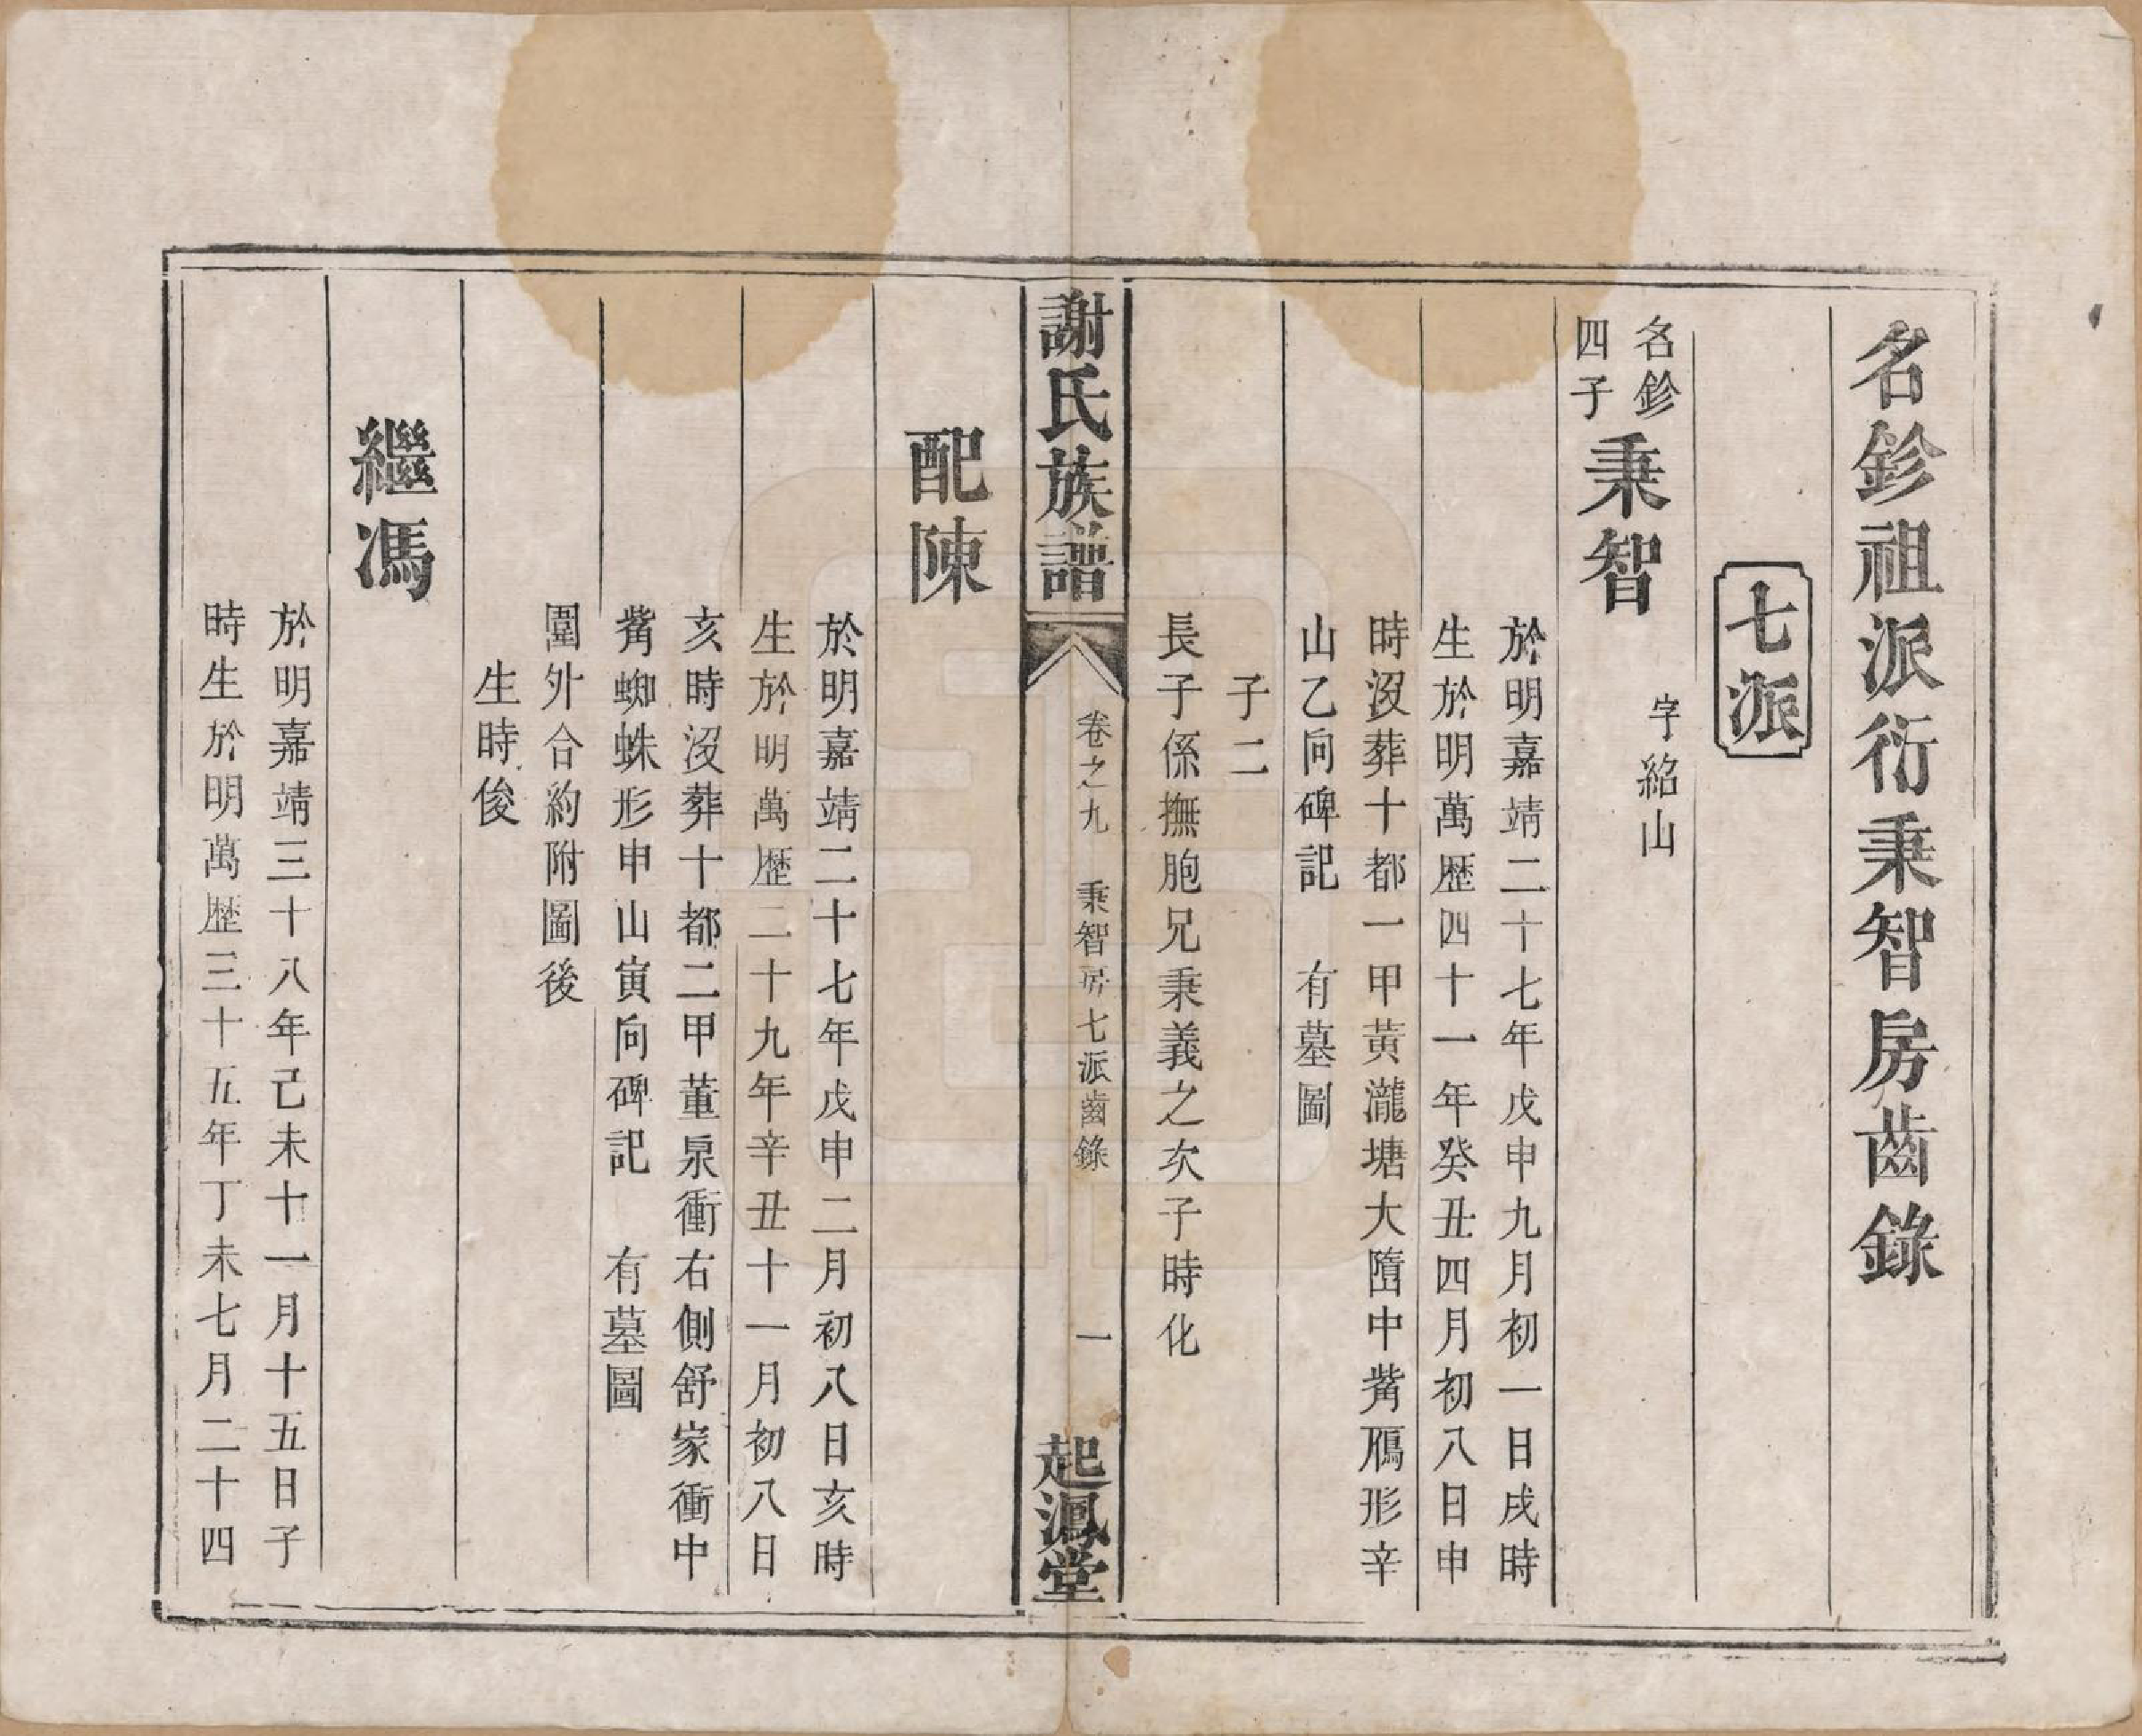 名鉁祖派衍秉智房齒錄
七派
名鉁
四子
秉智
字紹山
於明嘉靖二十七年戊申九月初一日戌時
生於明萬歷四十一年癸丑四月初八日申
時沒葬十都一甲黃瀧塘大墮中觜鴈形辛
山乙向碑記　有墓圖
子二
長子係撫胞兄秉義之次子時化
謝氏族譜
卷之九　秉智房七派齒錄
一
起鳳堂
配陳
於明嘉靖二十七年戊申二月初八日亥時
生於明萬歷二十九年辛丑十一月初八日
亥時沒葬十都二甲董泉衝右側舒家衝中
觜蜘蛛形申山寅向碑記　有墓圖
圍外合約附圖後
生時俊
繼馮
於明嘉靖三十八年己未十一月十五日子
時生於明萬歷三十五年丁未七月二十四